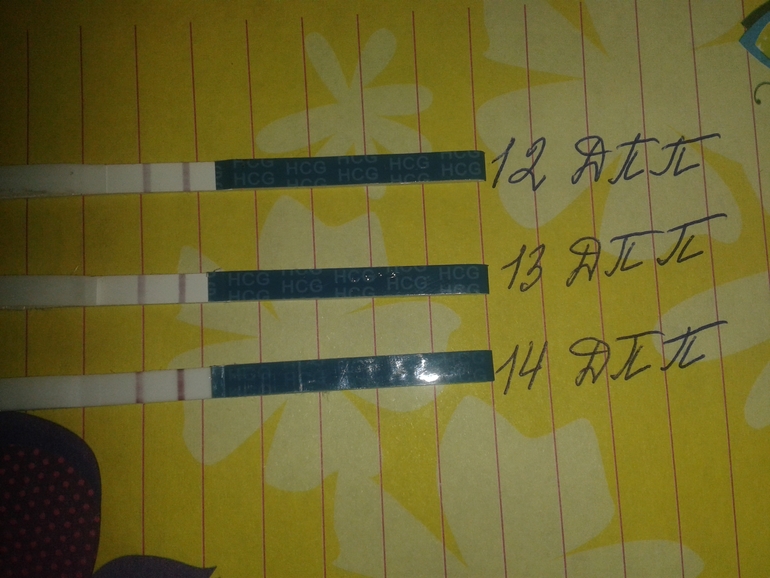 HCG HCG HCG HCG HCG
HCG HCG HCG HCG
12 ДПП
HCG HCG HCG HCG
HCG HCG HCG HCG
13 ДПП
14 ДПП